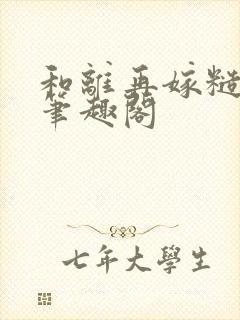 和離再嫁糙
筆趣閣
七年大學生